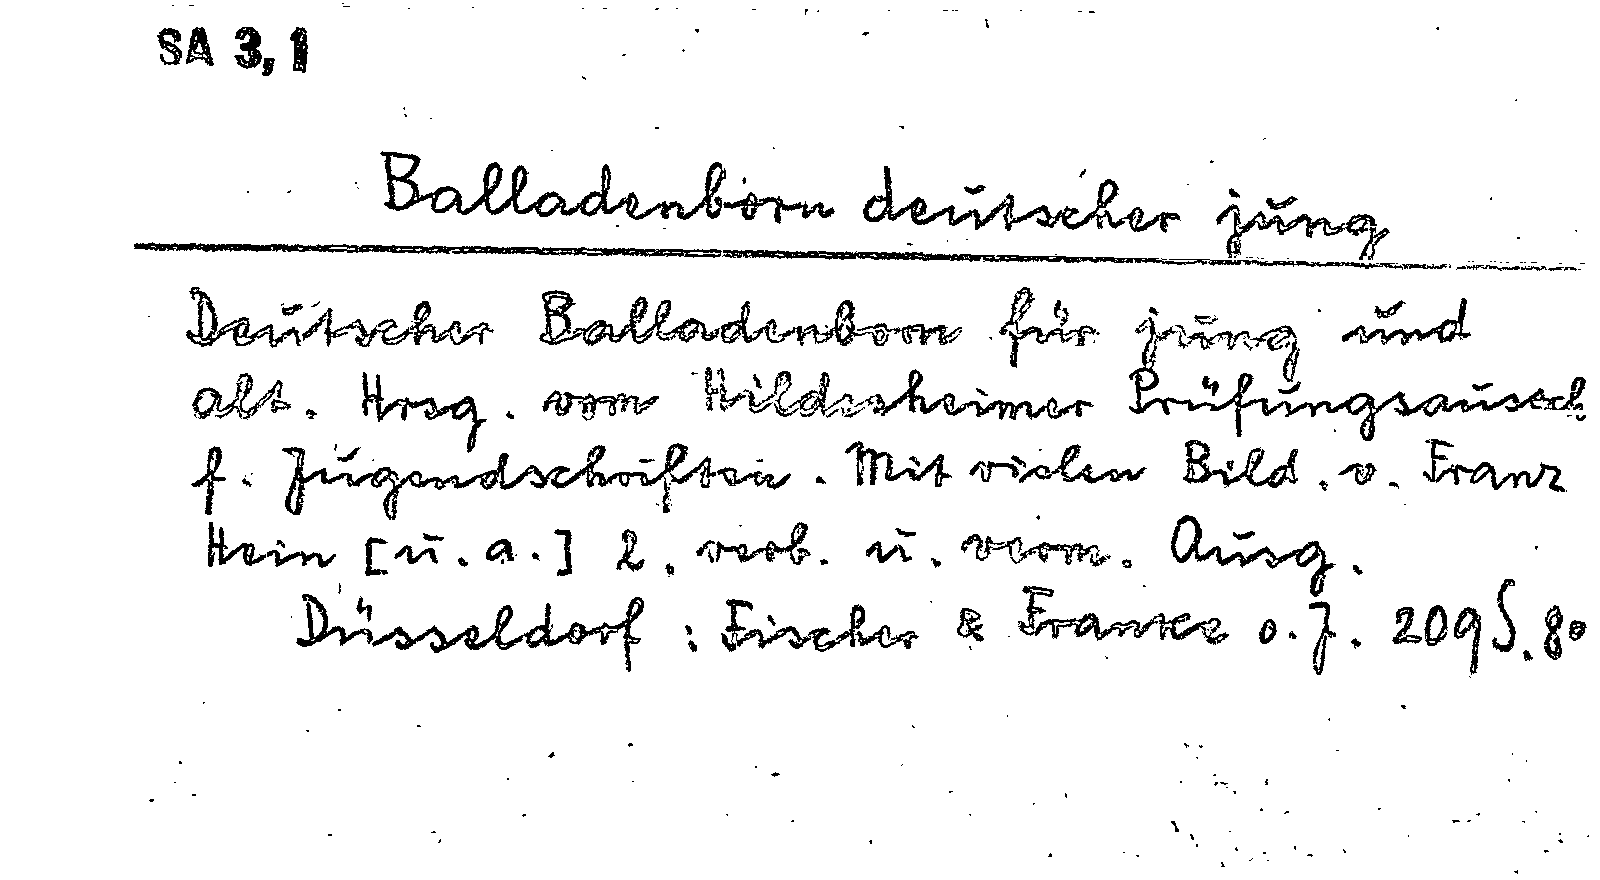 SA 3,1
Balladenborn deutscher jung
Deutscher Balladenborn für jung und
alt. Hrsg. vom Hildesheimer Prüfungsaussch.
f. Jugendschriften. Mit vielen Bild. v. Franz
Hein [u. a.] 2. verb. u. verm. Ausg.
Düsseldorf: Fischer & Franke o. J. 209 S. 8°